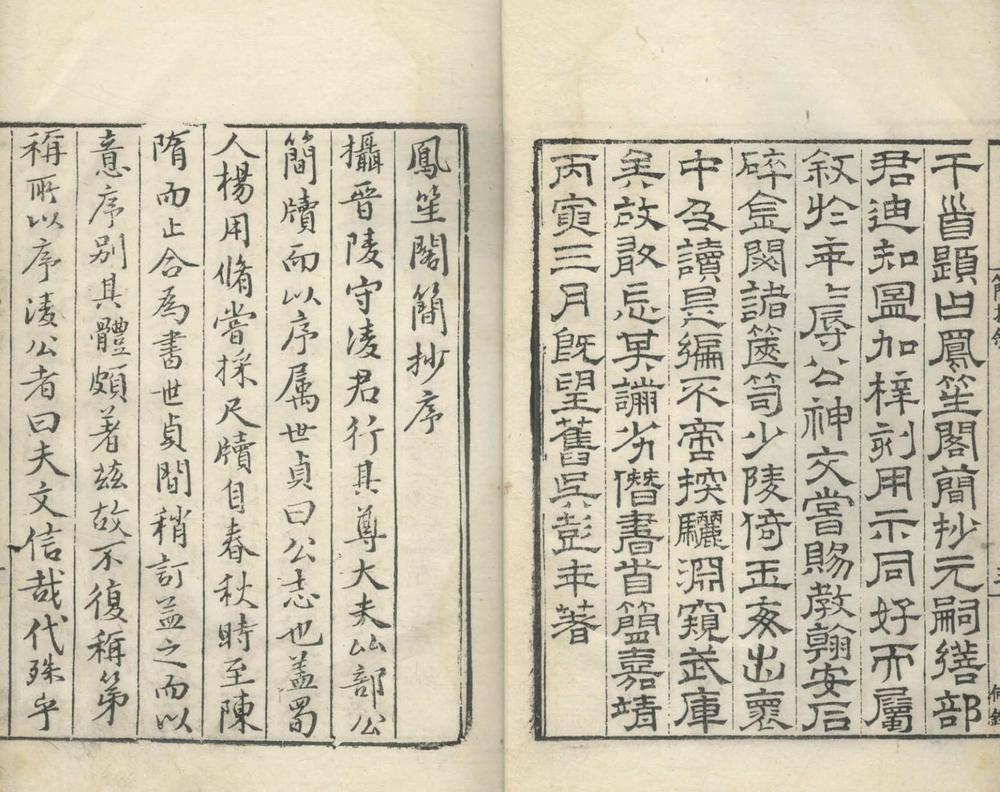 于首題曰鳳笙閣簡抄元嗣繕部
君迪知啚加梓刻用示同好而屬
敘於年々辱公神交嘗賜教翰安石
碎金閟諸篋笥少陵倚玉亥出褱
中及讀是編不啻探驪淵窺武庫
矣故敢忘其謭劣僭書首簡嘉靖
丙寅三月既望舊吳彭年著
鳳笙閣簡抄序
攝晉陵守淩君行其尊大夫山部公
簡牘而以序属世貞曰公志也蓋蜀
人楊用脩嘗採尺牘自春秋時至陳
隋而止合為書世貞間稍訂益之而以
意序别其體頗著玆故不復稱第
稱所以序淩公者曰夫文信哉代殊乎